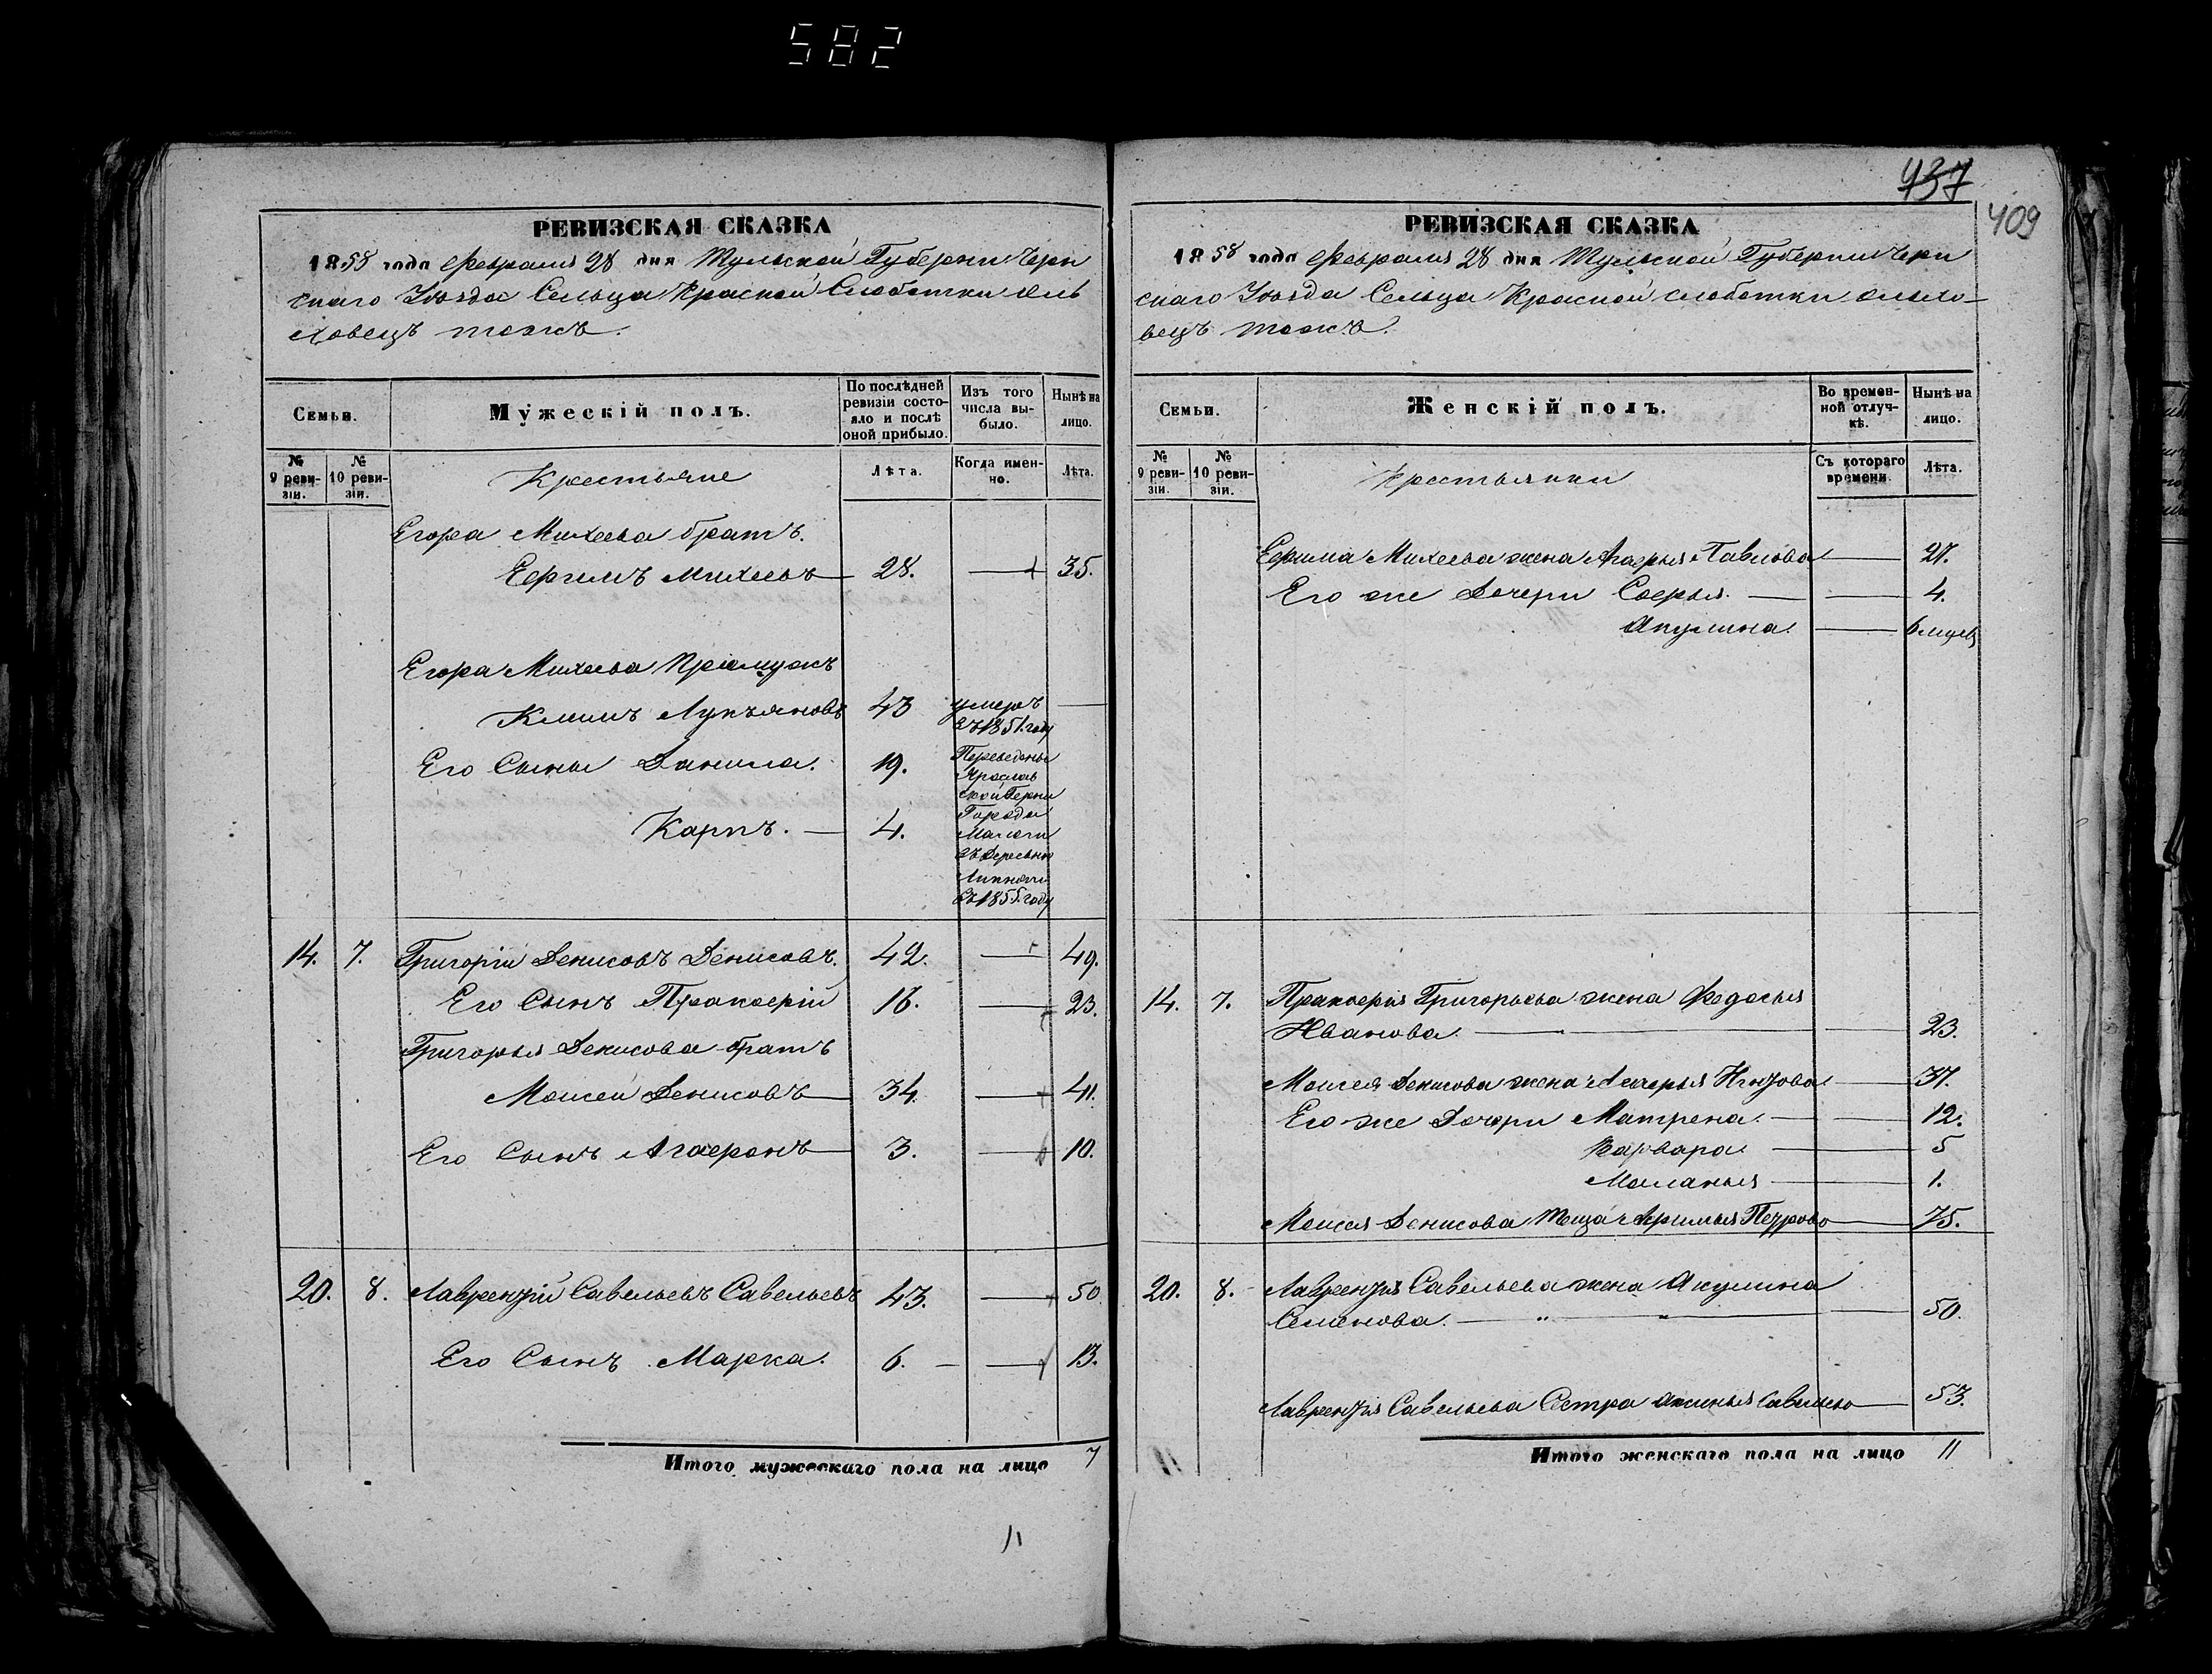 582
437
409
РЕВИЗСКАЯ СКАЗКА
1858 года Февраля 28 дня Тульской Губерни Черн
скаго Уѣзда Сельца Красной Слоботки Оль
ховецъ тожъ.
Семьи.
Мужескій полъ.
По послѣдней ревизіи состояло и послѣ оной прибыло.
Изъ того числа выбыло.
Нынѣ на лицо.
№ 9 ревизіи.
№ 10 ревизіи.
Крестьяне
Лѣта.
Когда именно.
Лѣта.
Егора Михеева братъ.
Ефимъ Михеевъ 28. 35.
Егора Михеева Пріемушъ
Климъ Лукъяновъ 43 умеръ
въ 1851. году
Его Сыны Данила. 19. Переведены
Яраслав
ской Губерни
Карпъ. 4. Города
Мологи
въ деревню
въ 1855. году
14. 7. Григорій Денисовъ Денисовъ. 42. 49.
Его Сынъ Пракофій 16. 23.
Григорья Денисова братъ
Моисей Денисовъ 34. 41.
Его Сынъ Агафонъ 3. 10.
20. 8. Лаврентій Савельевъ Савельевъ 43. 50
Его Сынъ Марка. 6. 13.
Итого мужескаго пола на лицо 7
11
РЕВИЗСКАЯ СКАЗКА
1858 года Февраля 28 дня Тульской Губерни Черн
скаго Уѣзда Сельца Красной слоботки ольхо-
вецъ тожъ.
Семьи.
Женскій полъ.
Во временной отлучкѣ.
Нынѣ на лицо.
№ 9 ревизіи.
№ 10 ревизіи.
Крестьянки
Съ котораго времени.
Лѣта.
Ефима Михеева жена Агафья Павлова 27.
Его же Дочери Софья. 4.
Акулина. 6 мцевъ
14. 7. Пракофья Григорьева жена Федосья
Иванова. 23.
Моисея Денисова жена 37.
Его же Дочери Матрена. 12.
Варвара. 5
Маланья 1.
Моисея Денисова Теща Афимья Петрова 75.
20. 8. Лаврентья Савельева жена Акулина
Семенова. 50.
Лаврентья Савельева Сестра Аксинья Савельева 53.
Итого женскаго пола на лицо 11